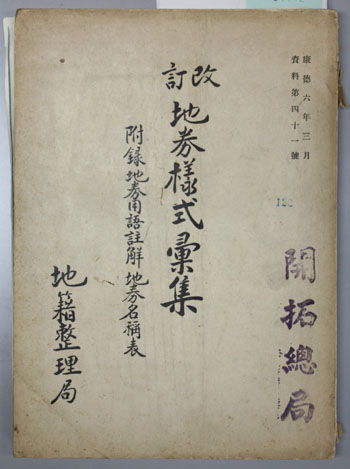 康德六年三月
資料第四十一號
改訂
地券樣式彙集
附録 地券用語註解 地券名稱表
地籍整理局
開拓總局